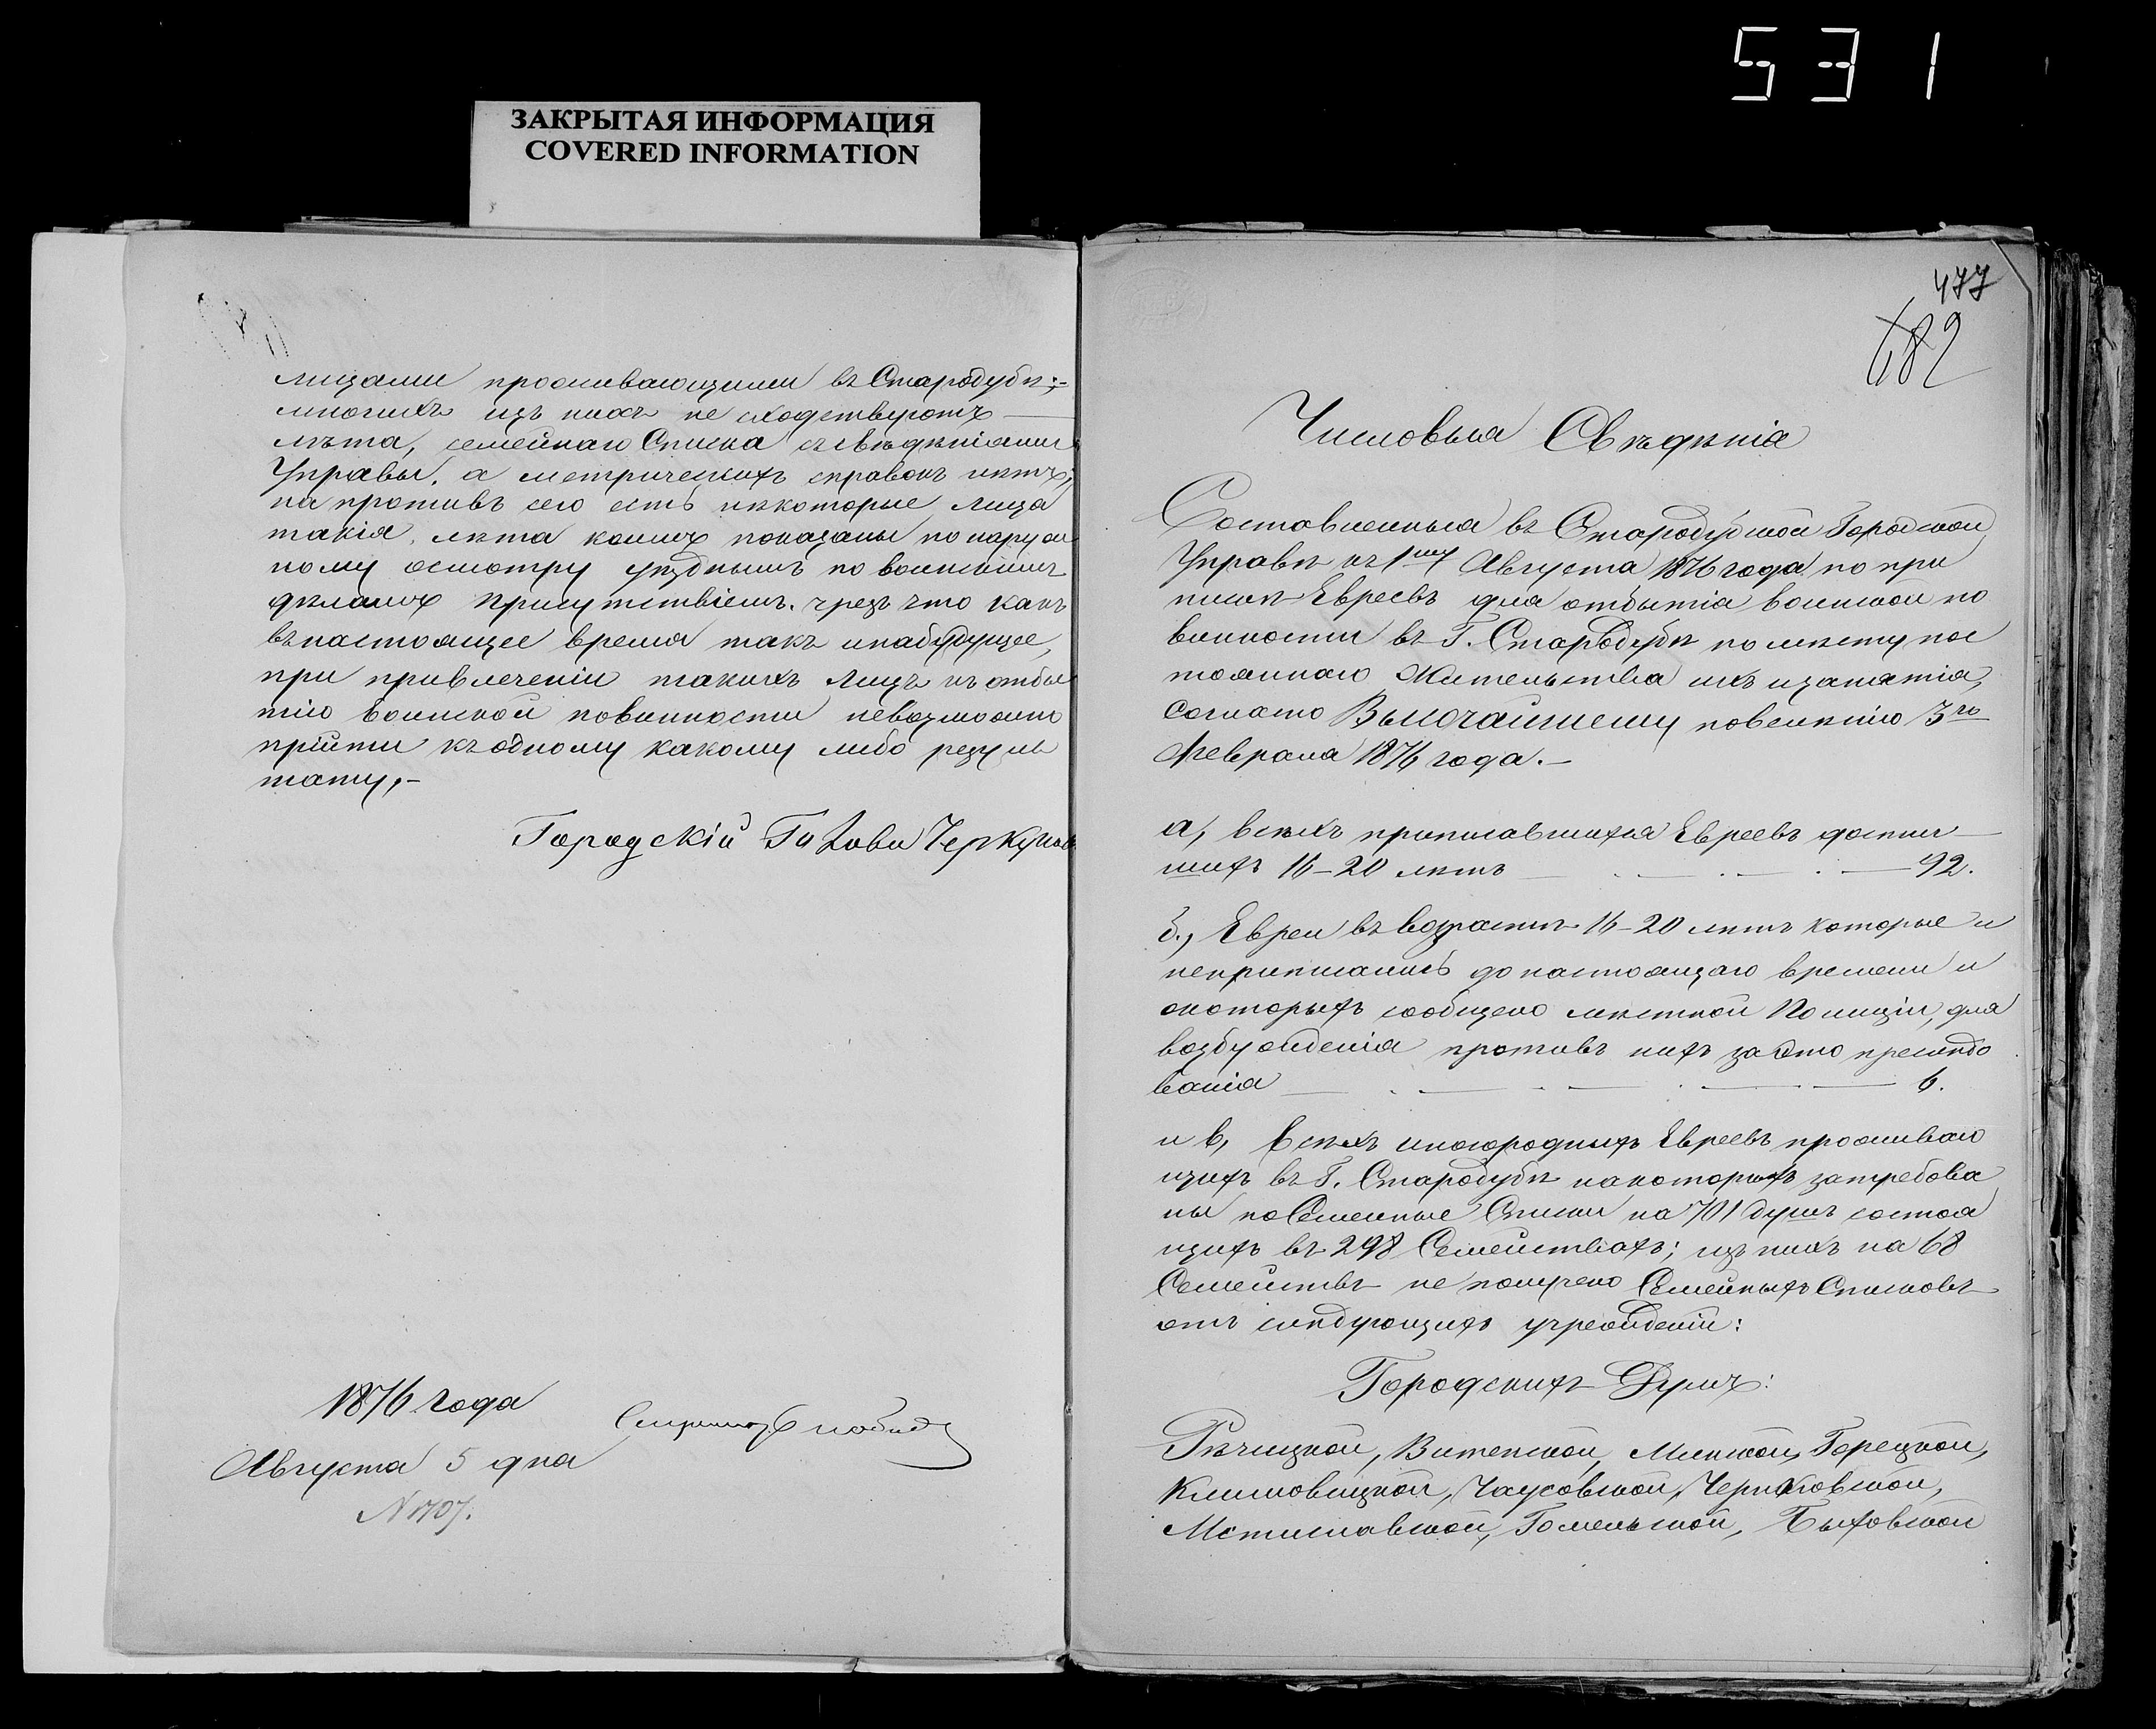 531
ЗАКРЫТАЯ ИНФОРМАЦИЯ
COVERED INFORMATION
лицами проживающими въ Стародубѣ;-
многихъ изъ нихъ не сходствуютъ
лѣта, семейнаго Списка съ свѣдѣніями
Управы, а метрическихъ справокъ нѣтъ;
на противъ сего есть нѣкоторые лица
такія, лѣта коихъ показаны по наруж
ному осмотру уѣзднымъ по воинскимъ
дѣламъ присутствіемъ. чрезъ что какъ
въ настоящее время такъ и на будущее,
при привлеченіи такихъ лицъ къ отбы
тію воинской повинности невозможно
прійти къ одному какому либо резуль
тату,-
Городскій Голова
1876 года
Августа 5 дня
N 1707.
477
682
Числовыя Свѣдѣнія
Составленныя въ Стародубской Городской
Управѣ къ 1му Августа 1876 года по при
пискѣ Евреевъ для отбытія воинской по
винности въ Г. Стародубѣ по мѣсту пос
тояннаго Жительства ихъ и занятія,
согласно Высочайшему повелѣнію 3го
Февраля 1876 года.-
а, всѣхъ приписавшихся Евреевъ достиг
шихъ 16-20 лѣтъ 92.
б., Евреи въ возрастѣ 16-20 лѣтъ которые и
неприписались до настоящаго времени и
о которыхъ сообщено мѣстной Полиціи, для
возбужденія противъ нихъ за это преслѣдо
ванія 6.
и в, всѣхъ иногородныхъ Евреевъ проживаю
щихъ въ Г. Стародубѣ на которыхъ затребова
ны посемейные Списки на 701 душъ состоя
щихъ въ 298 Семействахъ; изъ нихъ на 68
Семействъ не получено Семейныхъ Списковъ
отъ слѣдующихъ учрежденій:
Городскихъ Думъ:
Рѣчицкой, Витепской, Минской, Горецкой,
Климовицкой, Чаусовской, Чериковской,
Мстиславской, Гомельской, Быховской